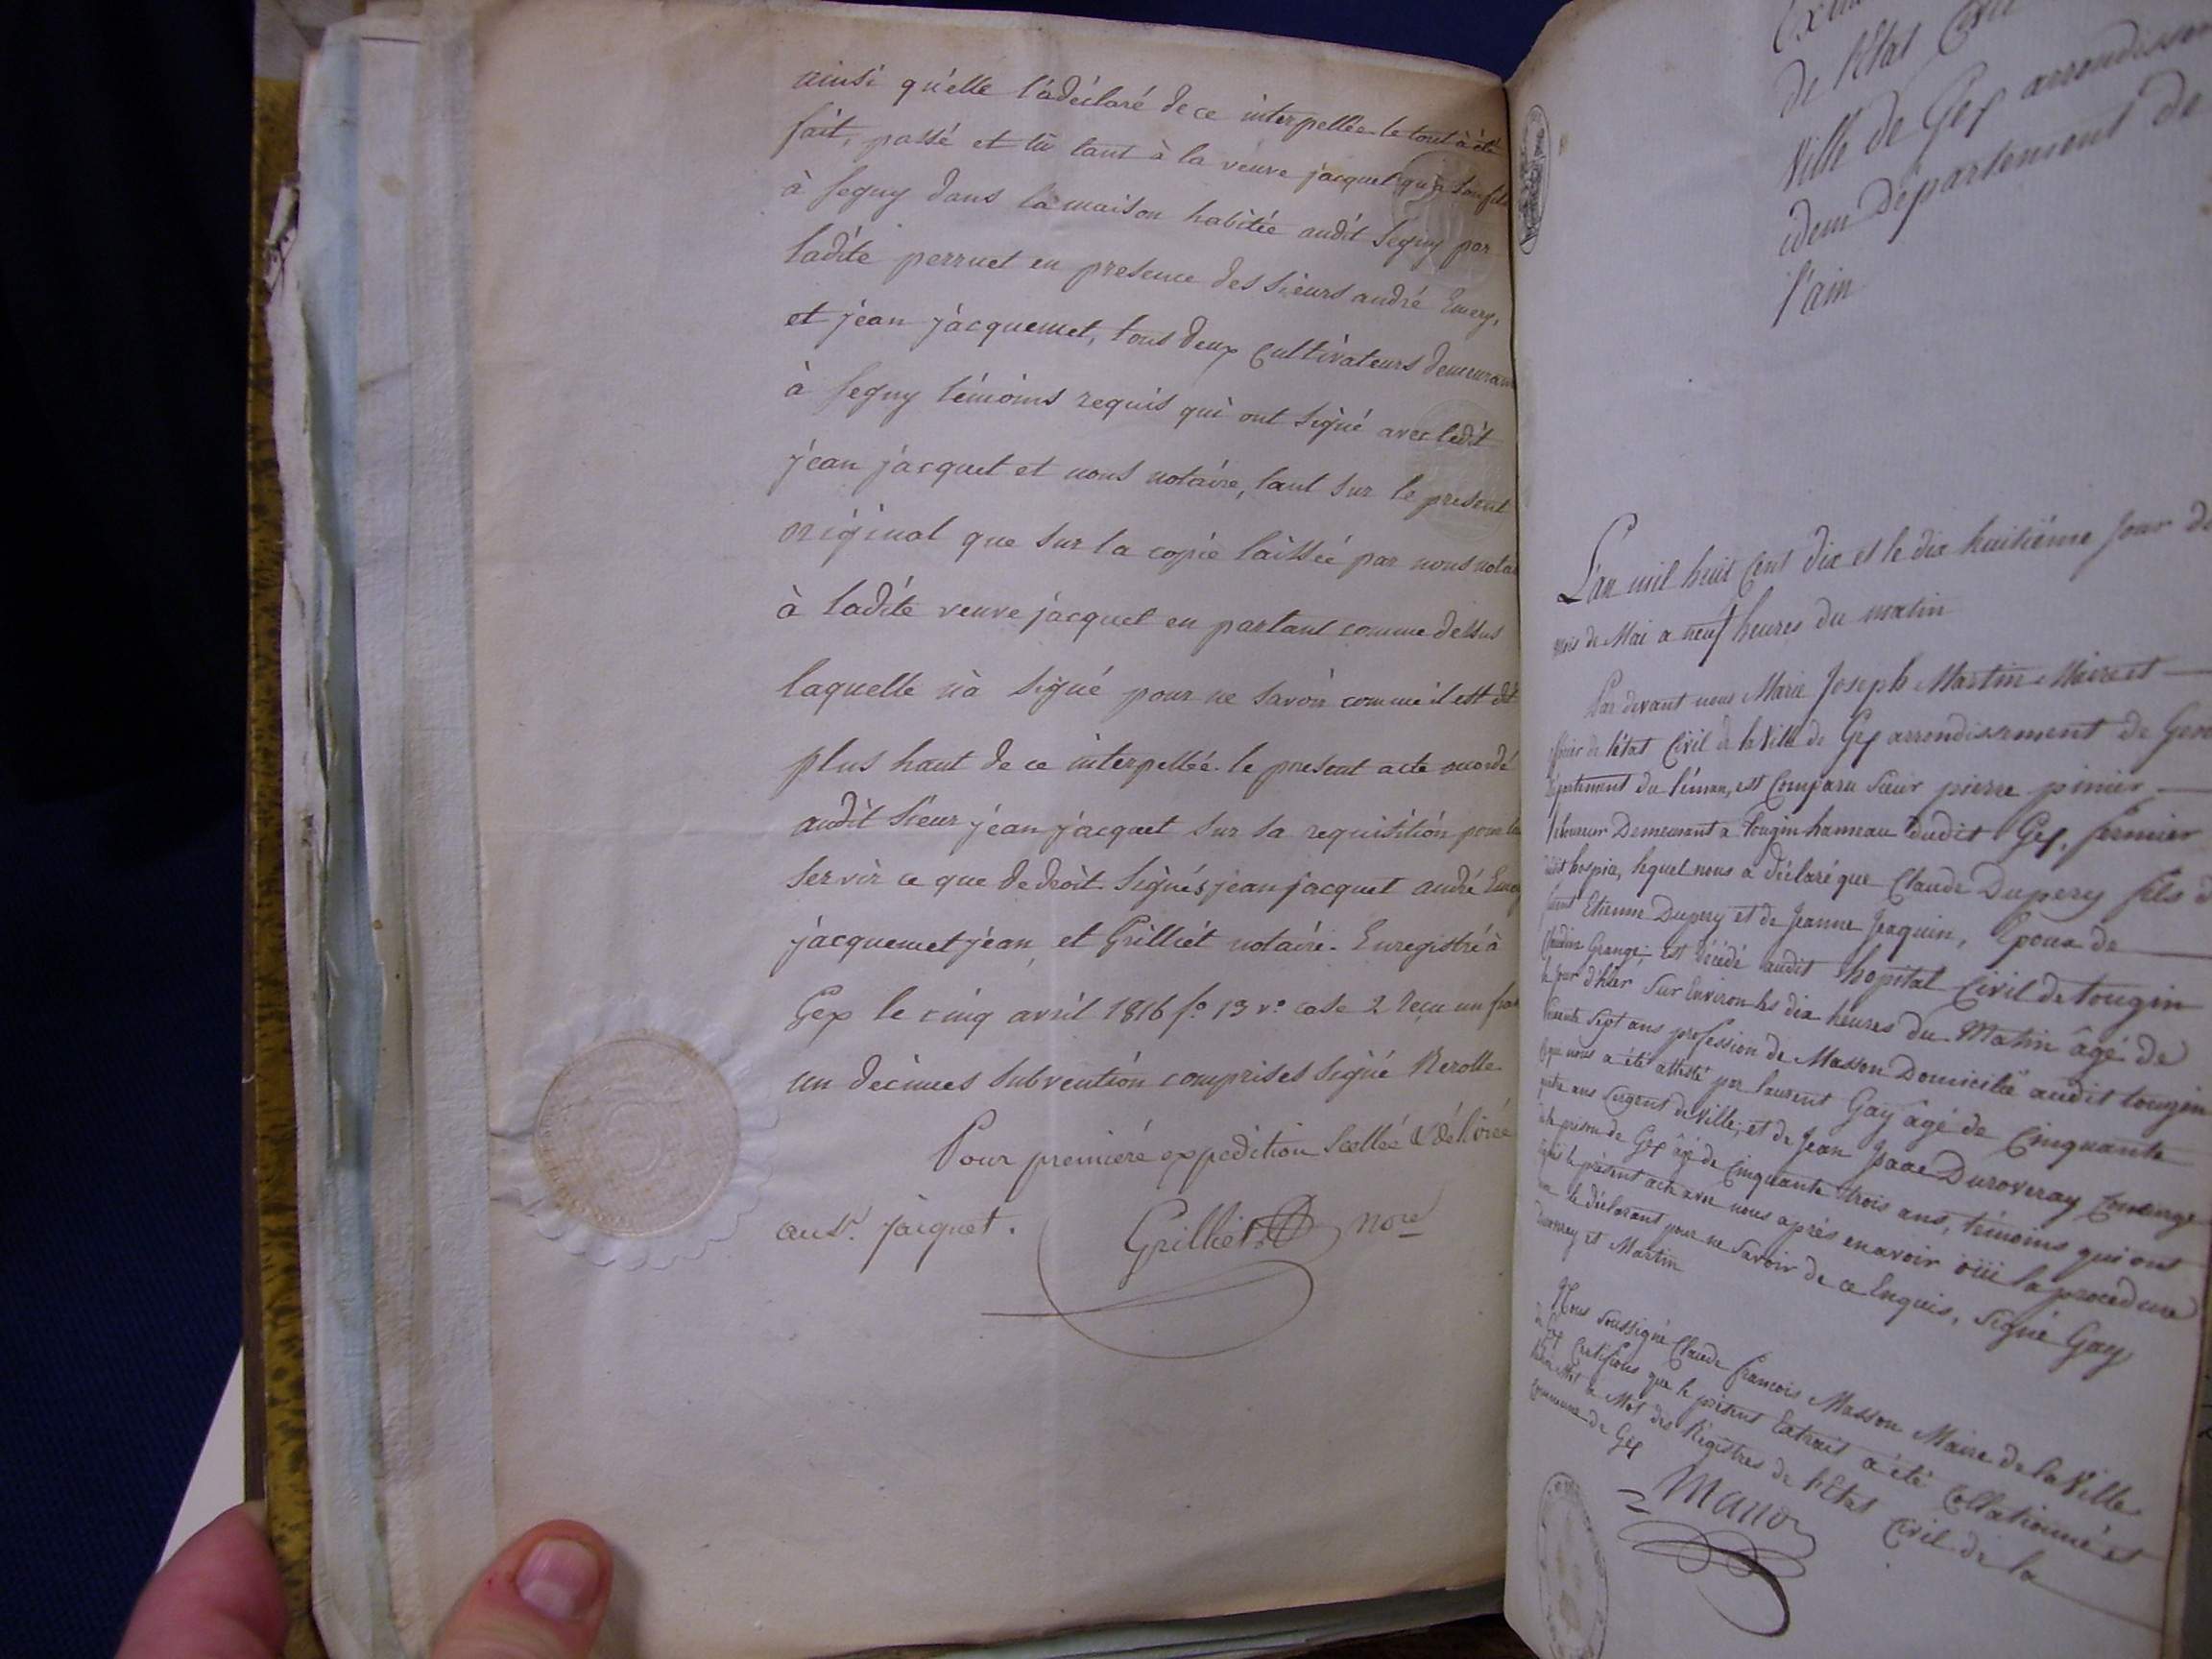 ainsi qu'elle l'a déclaré de ce interpellée le tout à été
fait, passé et lû tant à la veuve jacquet qu'a son fils
à Segny dans la maison habitée audit Segny par
ladite perruet en presence des sieurs andré Emery,
et jean jacquemet, tous deux cultivateurs demeurant
à Segny témoins requis qui ont signé avec ledit
jean jacquet et nous notaire, tant sur le present
original que sur la copie laissée par nous notai
à ladite veuve jacquet en parlant comme dessus
laquelle n'a signé pour ne savoir comme il est dit
plus haut de ce interpellée. le present acte
audit sieur jean jacquet sur sa requisition pour lui
servir ce que de droit. Signés jean jacquet andré Emery
jacquemet jean, et Grilliet notaire. Enregistré à
Gex le cinq avril 1816 fo. 13 vo. case 2 reçu un fran
un decimes subvention comprises signé Rerolle.
Pour premiére expedition Scellée & délivrée
au Sr. jacquet. Grilliet nore
de l'Etat Civil
Ville de Gex arrondissem
idem Département de
l'ain
L'an mil huit cent dix et le dix huitième jour d
mois de Mai a neuf heures du matin
Par devant nous Marie Joseph Martin Maire et
officier de l'état Civil de la Ville de Gex arrondissement de Gen
département du léman, est comparu Sieur pierre pinier
Laboureur Demeurant a tougin hameau dudit Gex, fermier
dudit hospice, lequel nous a déclaré que Claude Dupery fils d
feu Etienne Dupery et de Jeanne Jacquin, Epoux de
Claudine Grange, est décédé audit hopital Civil de tougin
le jour d'hier sur Environ les dix heures du Matin âgé de
sept ans profession de Masson Domicilié audit tougin
ce que nous a été attesté par laurent Gay âgé de Cinquante
quatre ans sergent de Ville, et de Jean Isaac Duroveray Concierge
de la prison de Gex âgé de Cinquante trois ans, témoins qui ont
signé le présent acte avec nous après en avoir oüi la procedure
non le déclarant pour ne Savoir de ce Enquis, Signé Gay
Duroveray et Martin
Nous Soussigné Claude francois Masson Maire de la Ville
de Gex Certifions que le présent Extrait a été Collationné et
Mot a Mot des Régistres de l'Etat Civil de la
Commune de Gex